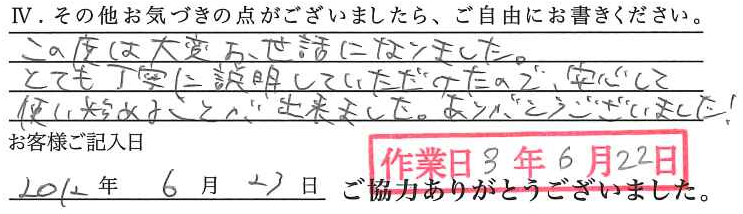 Ⅳ．その他お気づきの点がございましたら、ご自由にお書きください。
この度は大変お世話になりました。
とても丁寧に説明していただけたので、安心して
使い始めることが出来ました。ありがとうございました!
お客様ご記入日
作業日 3 年 6 月 22 日
2012 年 6 月 23 日 ご協力ありがとうございました。